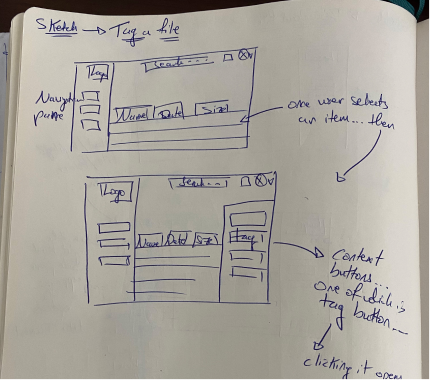 Sketch → Tag a file
Logo
Search...
Navigation
pane
Name Date Size
one user selects
an item... then
Logo
Search...
Name Date Size
Tag
Context
buttons...
one of which is
tag button...
clicking it opens